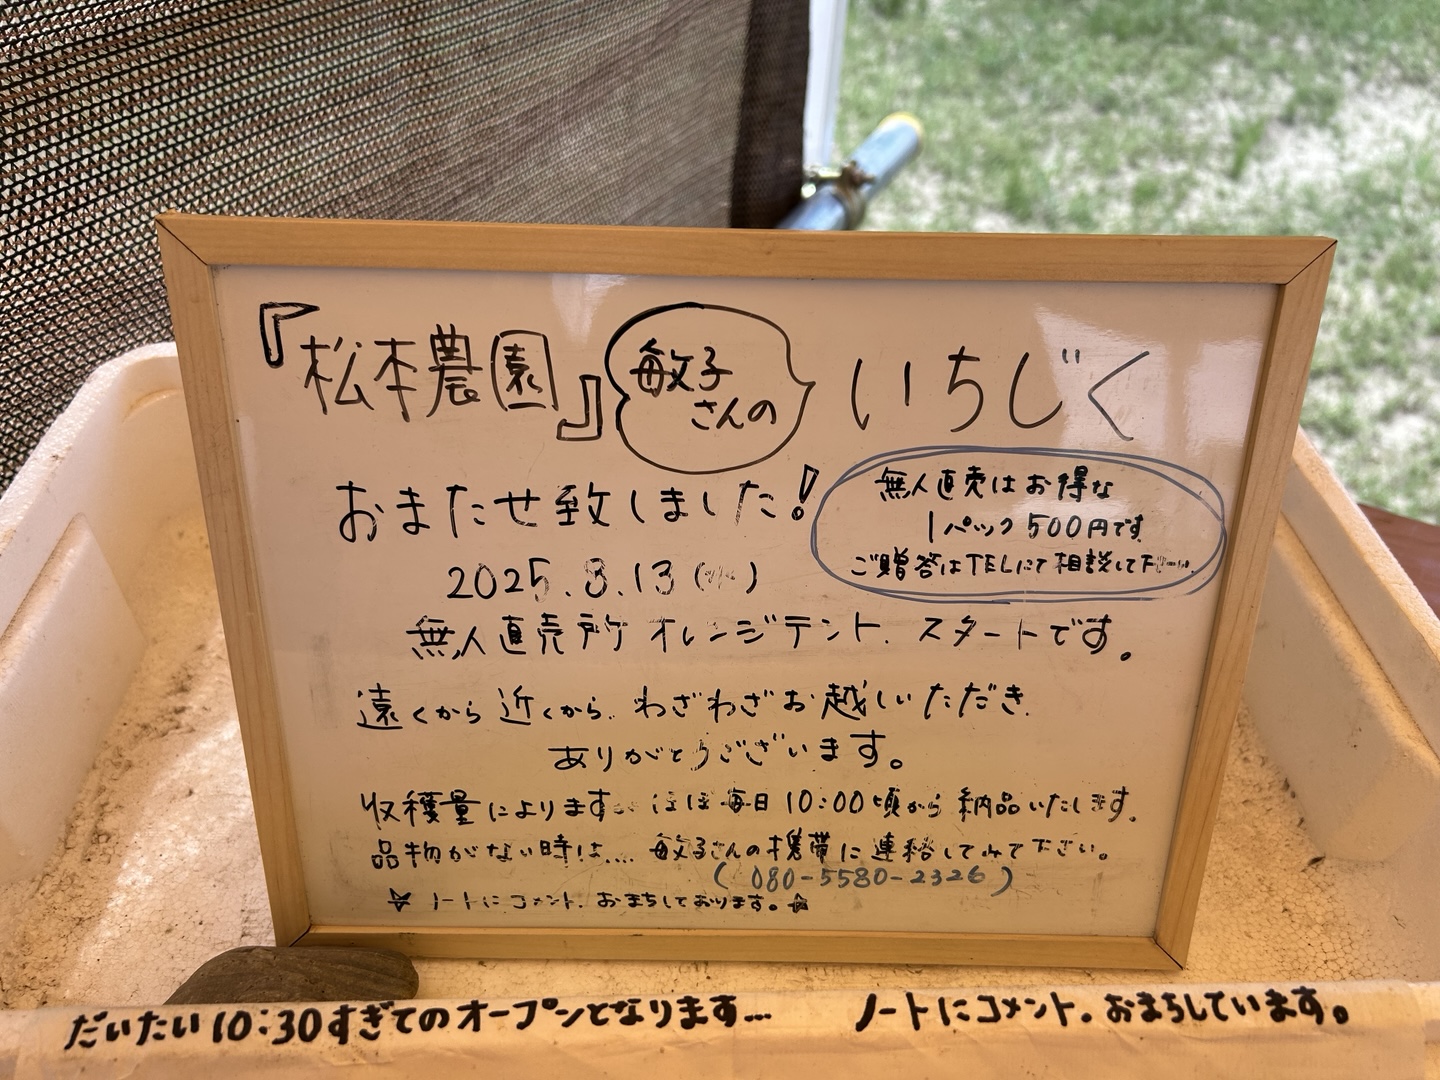 『松本農園』敏子さんのいちじく
おまたせ致しました!
2025.8.13(水)
無人直売はお得な
1パック500円です
ご贈答はTELにて相談して下さい。
無人直売所オレンジテント.スタートです。
遠くから近くから.わざわざお越しいただき.
ありがとうございます。
収穫量によりますが ほぼ毎日10:00頃から納品いたします.
品物がない時は....敏子さんの携帯に連絡してみて下さい。
(080-5580-2326)
☆ノートにコメント.おまちしております。☆
だいたい10:30すぎてのオープンとなります...
ノートにコメント.おまちしています。